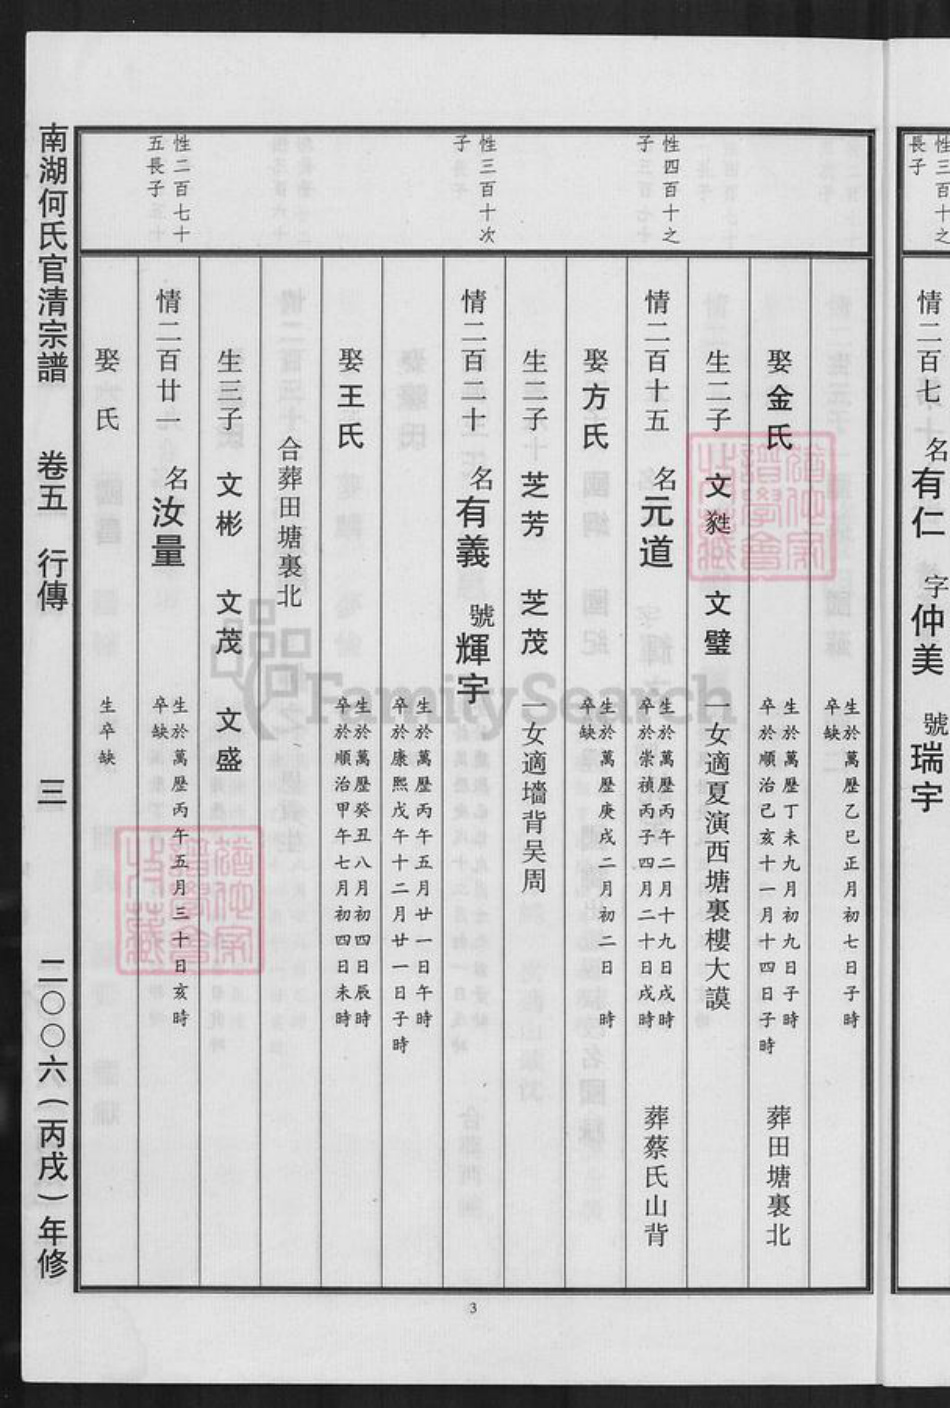 性三百十之
長子
情二百七 名有仁 字仲美 號瑞宇
生於萬歷乙巳正月初七日子時
卒缺
娶金氏
生於萬歷丁未九月初九日子時
卒於順治己亥十一月十四日子時
葬田塘裏北
生二子 文㲋 文璧 一女適夏演西塘裏樓大謨
性四百十之
子
情二百十五 名元道
生於萬歷丙午二月十九日戌時
卒於崇禎丙子四月二十日戌時
葬蔡氏山背
娶方氏
生於萬歷庚戌二月初二日 時
卒缺
生二子 芝芳 芝茂 一女適墻背吴周
性三百十次
子
情二百二十 名有義 號輝宇
生於萬歷丙午五月廿一日午時
卒於康熙戊午十二月廿一日子時
娶王氏
生於萬歷癸丑八月初四日辰時
卒於順治甲午七月初四日未時
合葬田塘裏北
生三子 文彬 文茂 文盛
性二百七十
五長子
情二百廿一 名汝量
生於萬歷丙午五月三十日亥時
卒缺
娶 氏
生卒缺
南湖何氏官清宗譜 卷五 行傳 三 二○○六(丙戌)年修
3
FamilySearch